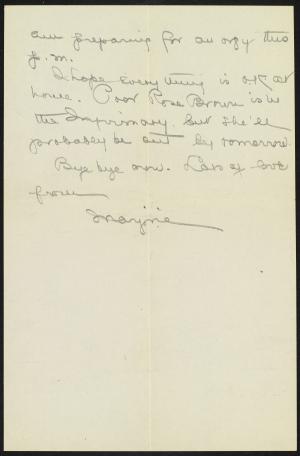 am preparing for an orgy this
p.m.
I hope everything is ok at
home. Poor Rose Brown is in
the Infirmary but she'll
probably be out by tomorrow.
Bye bye now. Lots of love
from
Marjorie